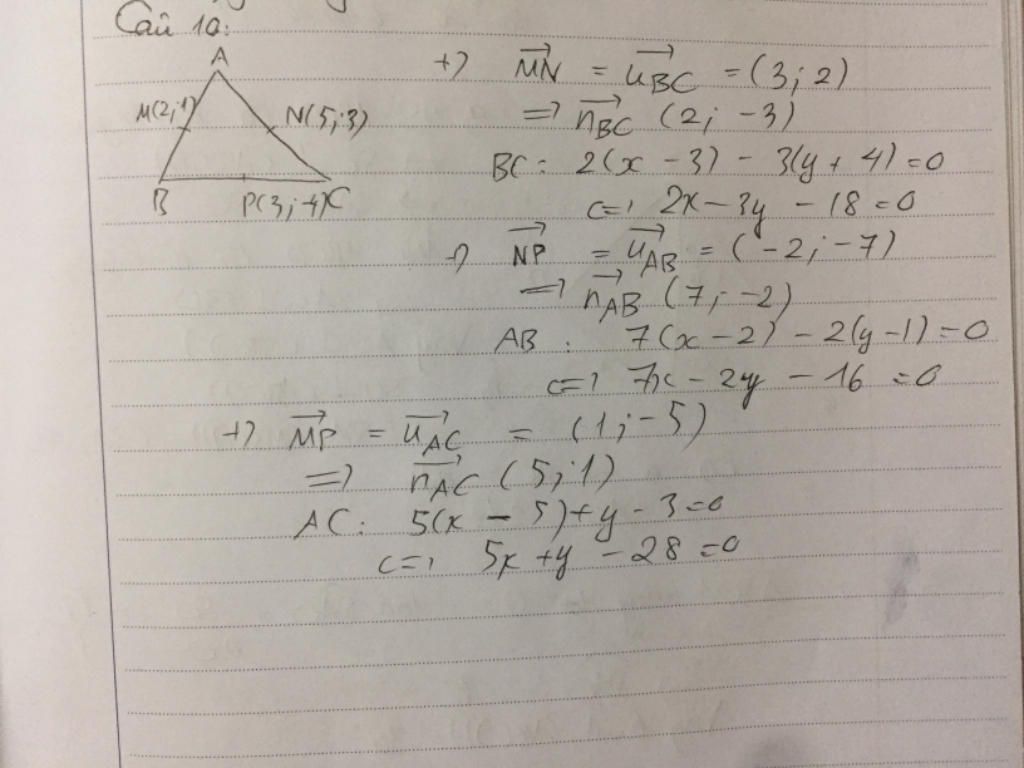 Câu 10:
A
M(2;1)
N(5;3)
B
P(3;-4)
C
+) $\overrightarrow{MN} = \overrightarrow{u_{BC}} = (3; 2)$
=> $\overrightarrow{n_{BC}}$ (2; -3)
BC: 2(x - 3) - 3(y + 4) = 0
<=> 2x - 3y - 18 = 0
+) $\overrightarrow{NP} = \overrightarrow{u_{AB}} = (-2; -7)$
=> $\overrightarrow{n_{AB}}$ (7; -2)
AB: 7(x - 2) - 2(y - 1) = 0
<=> 7x - 2y - 16 = 0
+) $\overrightarrow{MP} = \overrightarrow{u_{AC}} = (1; -5)$
=> $\overrightarrow{n_{AC}}$ (5; 1)
AC: 5(x - 5) + y - 3 = 0
<=> 5x + y - 28 = 0